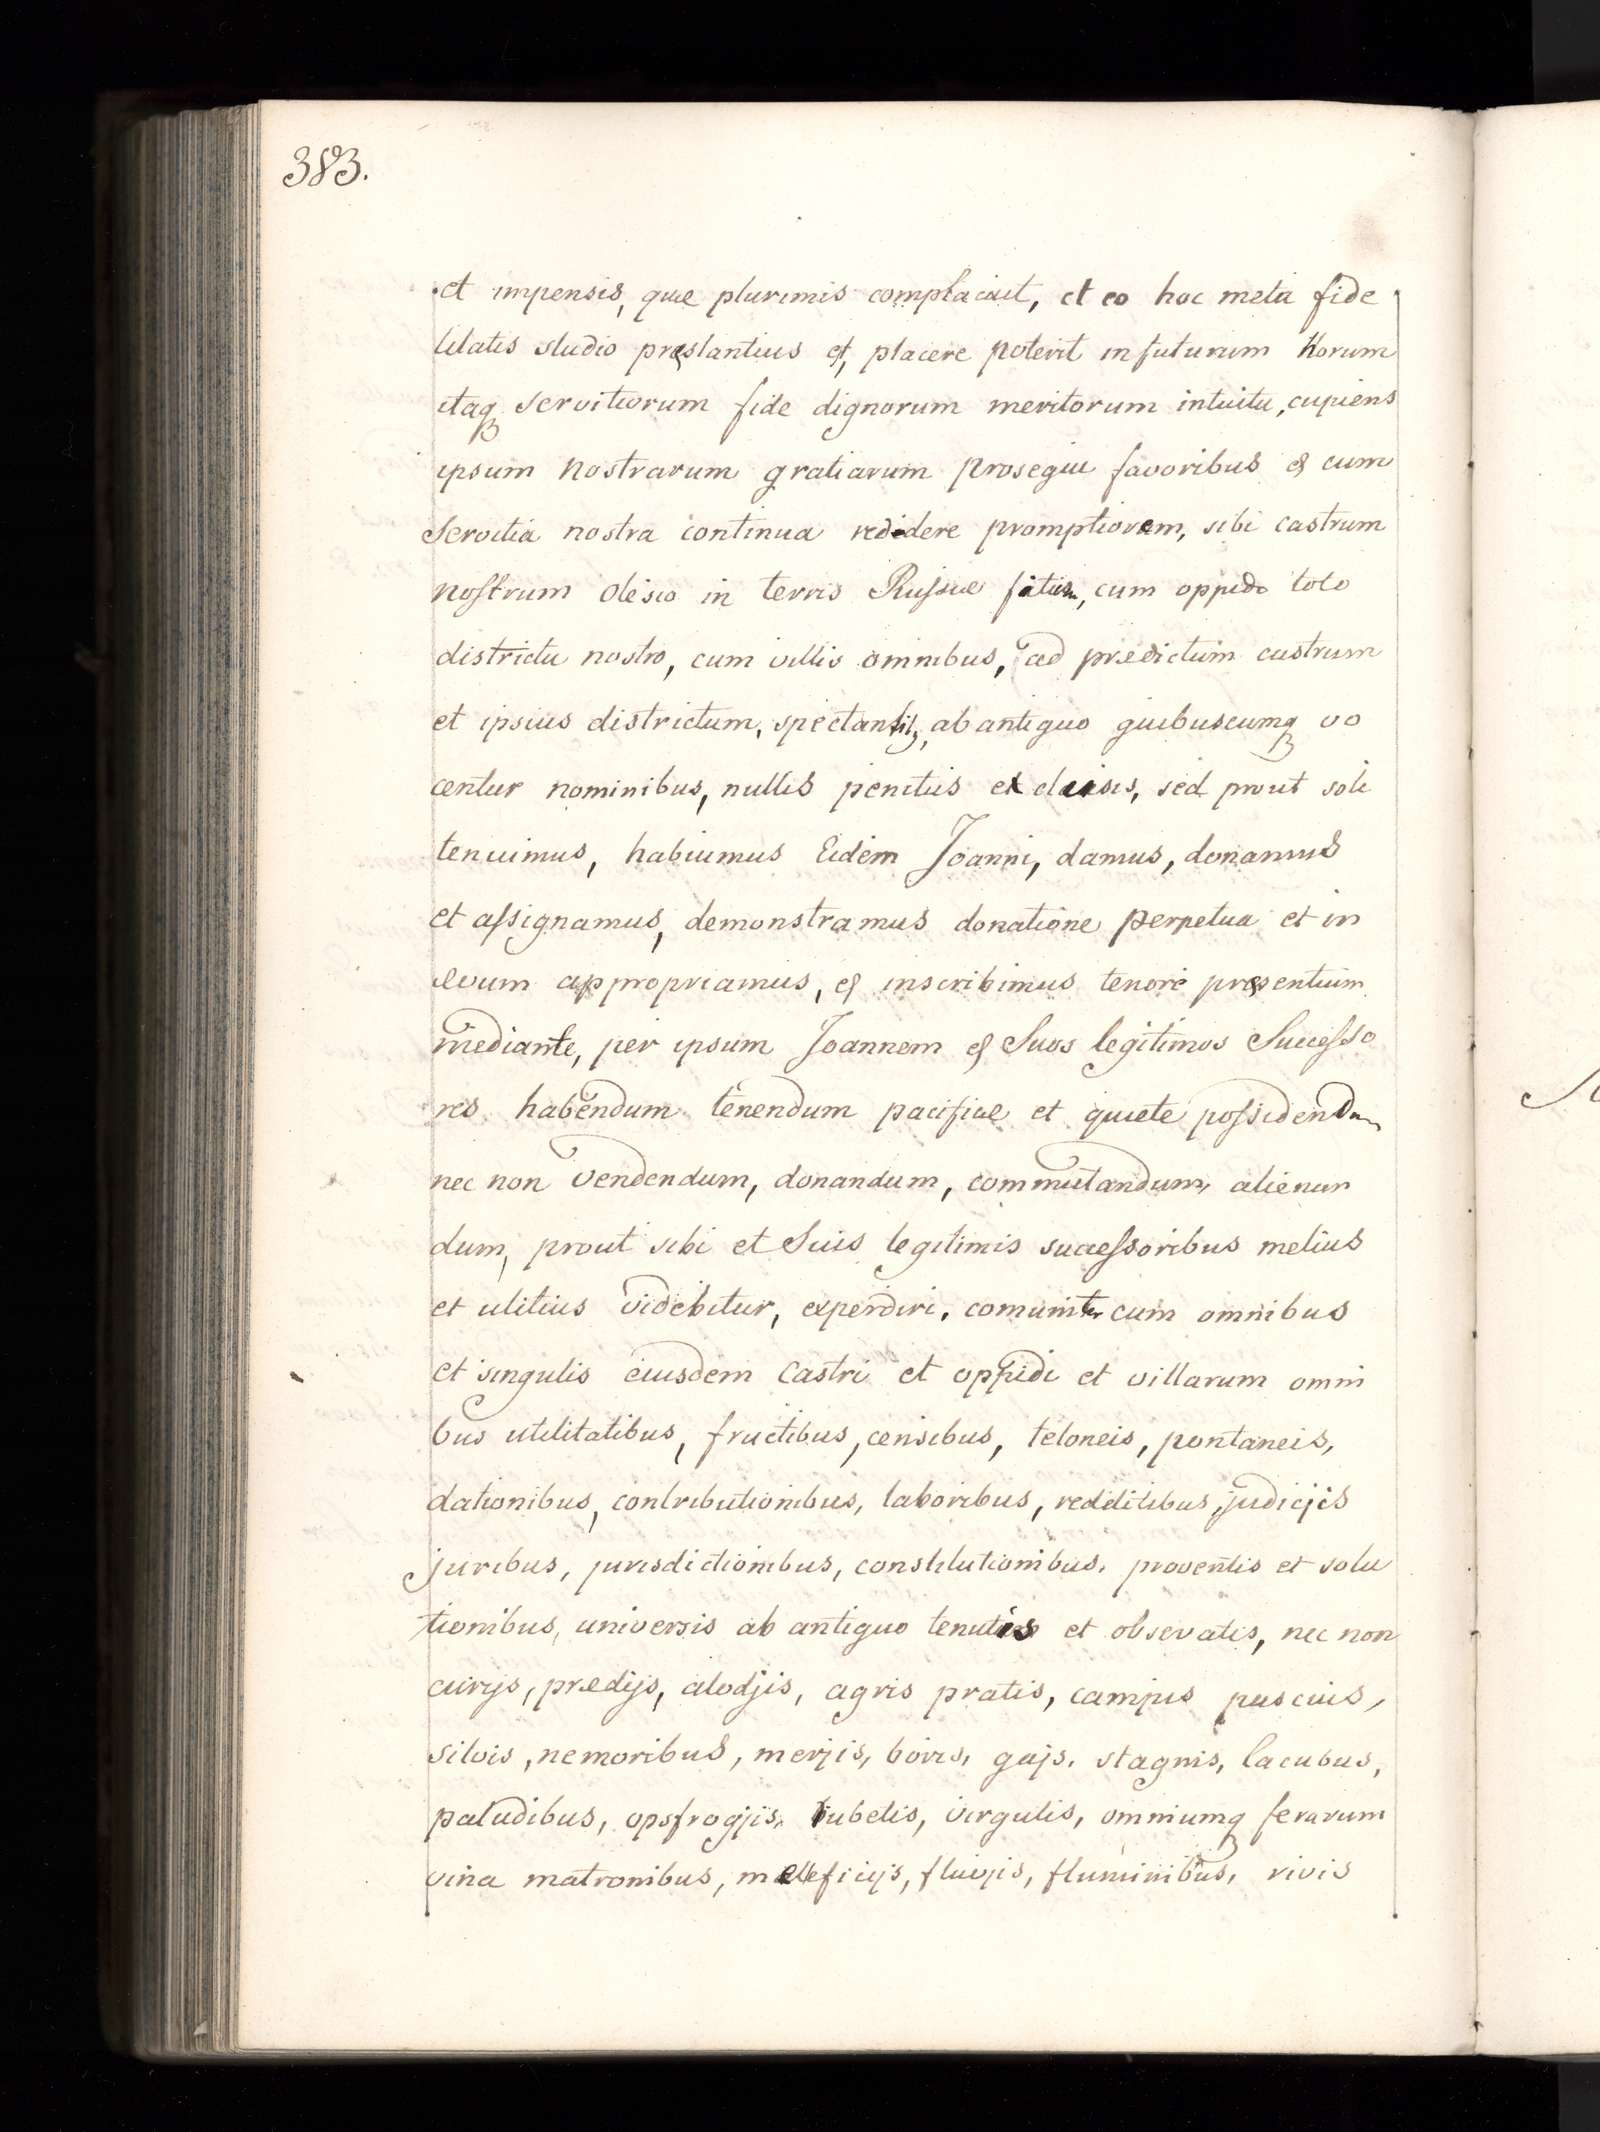 383.
et impensis, quæ plurimis complacuit, et eo hoc meta fide
litatis studio pręstantius et, placere poterit in futurum Horum
itaq servitiorum fide dignorum meritorum intuitu, cupiens
ipsum nostrarum gratiarum prosequi favoribus & cum
Servitia nostra continua reddere promptiorem, sibi castrum
nostrum Olesco in terris Russiæ situm, cum oppido toto
districtu nostro, cum villis omnibus, ad prædictum castrum
et ipsius districtum, spectantis, ab antiquo quibuscumq vo
centur nominibus, nullis penitus exclusis, sed prout soli
tenuimus, habuimus Eidem Joanni, damus, donamus
et assignamus, demonstramus donatione perpetua et in
ævum appropriamus, & inscribimus tenore pręsentium
mediante, per ipsum Joannem & Suos legitimos Successo
res habendum tenendum pacifice et quiete possidendum
nec non vendendum, donandum, commutandum, alienan
dum, prout sibi et Suis legitimis successoribus melius
et utilius videbitur, expendiri, comuniter cum omnibus
et singulis eiusdem Castri et oppidi et villarum omni
bus utilitatibus, fructibus, censibus, teloneis, pontaneis,
dationibus, contributionibus, laboribus, redditibus, judicijs
juribus, jurisdictionibus, constitutionibus, proventis et solu
tionibus, universis ab antiquo tenutis et observatis, nec non
curijs, prædijs, alodjis, agris pratis, campis pascuis,
silvis, nemoribus, merjis, boris, gajs, stagnis, lacubus,
paludibus, opsfrogjis, rubetis, virgultis, omniumq ferarum
vina matronibus, mellificijs, fluvjis, fluminibus, rivis